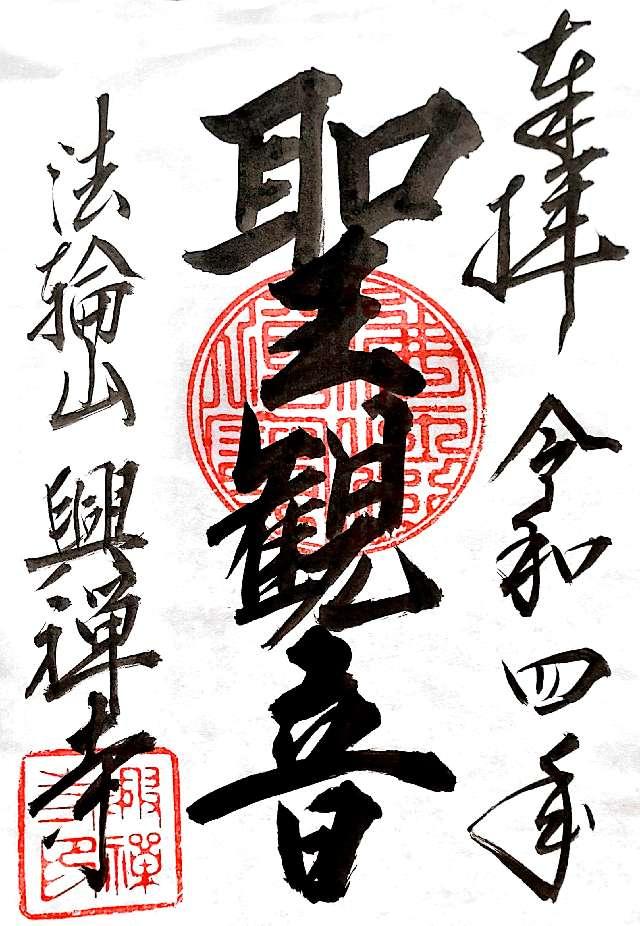 奉拝 令和四年
聖観音
法輪山 興禅寺